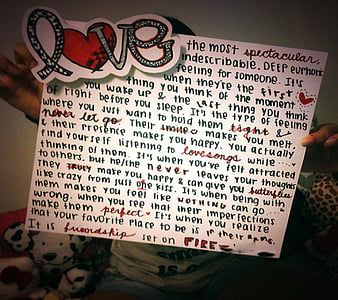 LOVE
the most spectacular,
indescribable, DEEP euphoric
feeling for someone. It's
when they're the first
thing you think of the moment
you wake up & the last thing you think
of right before you sleep. It's the type of feeling
where you just want to hold them tight &
never let go. Their smile makes you melt,
& their presence makes you happy. You actually
find yourself listening to lovesongs while
thinking of them. It's when you've felt attracted
to others, but he/she never leaves your thoughts
they TRULY make you happy & can give you butterflies
like crazy from just one kiss. It's when being with
them makes you feel like NOTHING can go
wrong. when you see that their imperfections
make them perfect. It's when you realize
that your favorite place to be is in their arms.
It is friendship set on FIRE